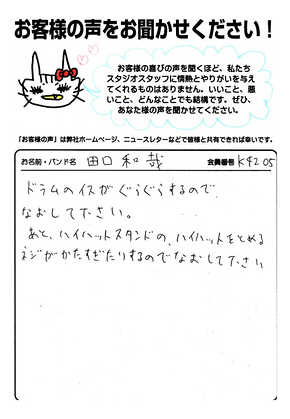 お客様の声をお聞かせください！
お客様の喜びの声を聞くほど、私たち
スタジオスタッフに情熱とやりがいを与え
てくれるものはありません。いいこと、悪
いこと、どんなことでも結構です。ぜひ、
あなた様の声を聞かせてください。
「お客様の声」は弊社ホームページ、ニュースレターなどで皆様と共有できれば幸いです。
お名前・バンド名 田口和哉 会員番号 K4205
ドラムのイスがぐらぐらするので
なおして下さい。
あと、ハイハットスタンドの、ハイハットをとめる
ネジがかたすぎたりするのでなおして下さい